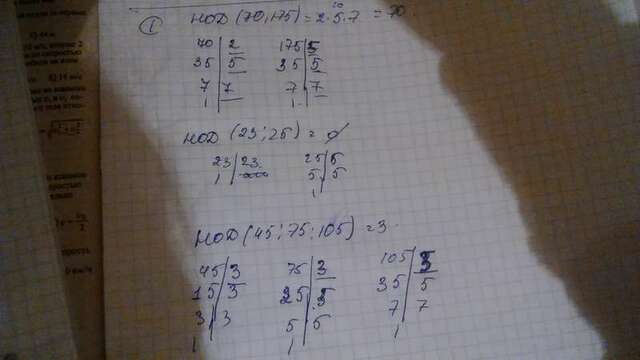 ① НОД (70,175) = 2·5·7 = 70
70 | 2 175 | 5
35 | 5 35 | 5
7 | 7 7 | 7
1 | 1 |
НОД (23; 25) = 0
23 | 23 25 | 5
1 | 5 | 5
1 |
НОД (45; 75; 105) = 3
45 | 3 75 | 3 105 | 3
15 | 3 25 | 5 35 | 5
3 | 3 5 | 5 7 | 7
1 | 1 | 1 |